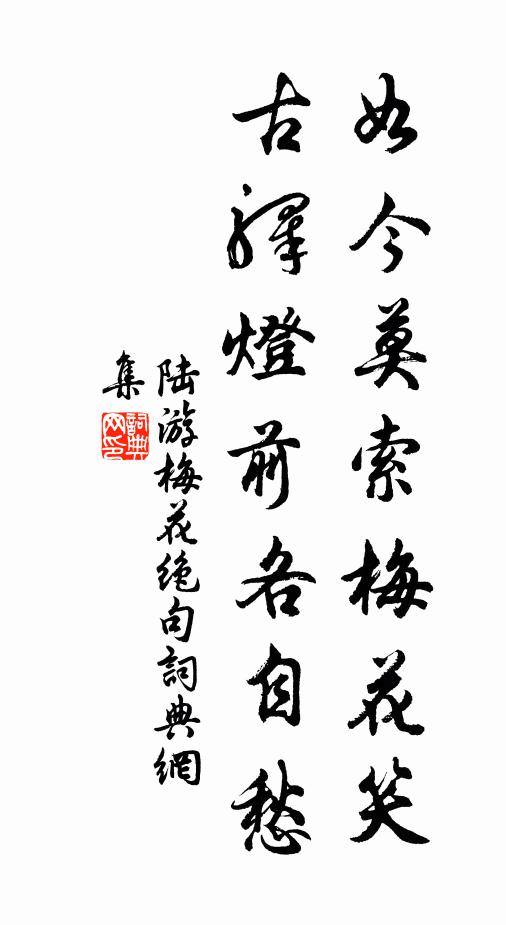 如今莫索梅花笑
古驛燈前各自愁
陸游梅花絕句詞典網
集
詞典
网印